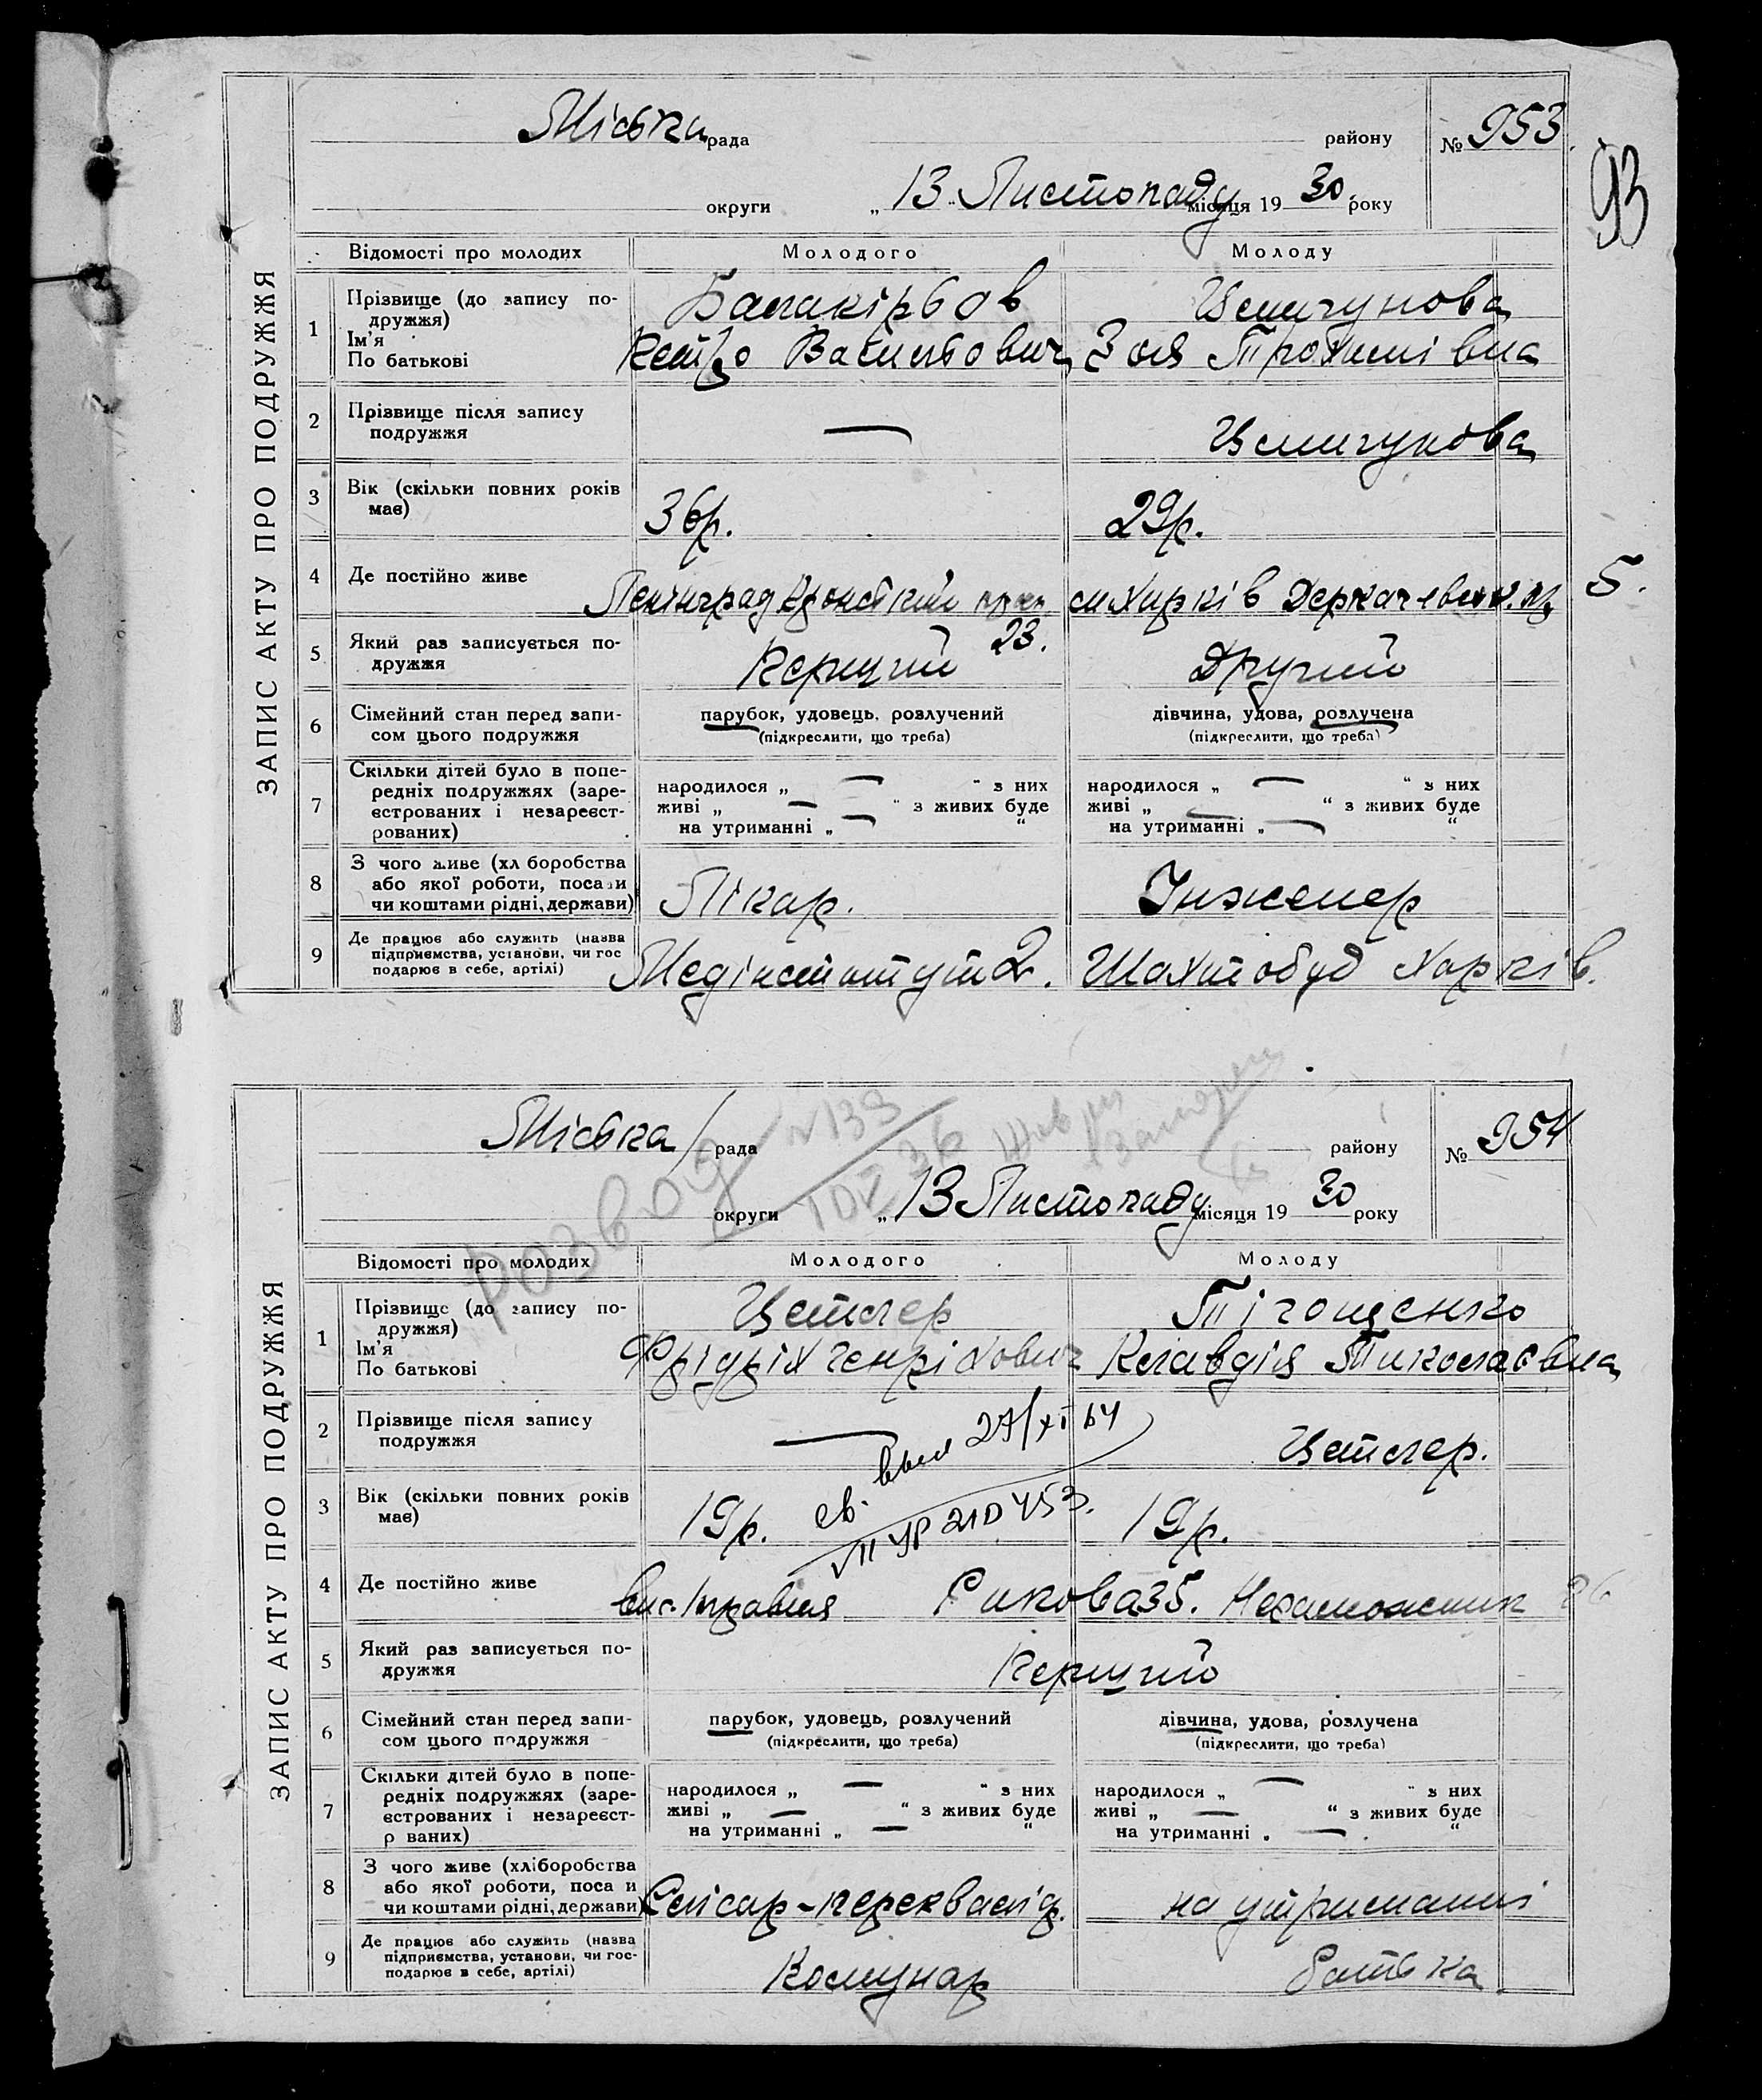 93
ЗАПИС АКТУ ПРО ПОДРУЖЖЯ
Міська рада району № 953
округи „13" Листопаду місяця 1930 року
Відомості про молодих Молодого Молоду
1 Прізвище (до запису по-
дружжя)
Ім'я
По батькові
Балакірьов
Петро Васильович
Зоя
2 Прізвище після запису
подружжя
—
3 Вік (скільки повних років
має)
36р. 29р.
4 Де постійно живе
Ленінград м Харків
23.
5.
5 Який раз записується по-
дружжя
Перший Другий
6 Сімейний стан перед запи-
сом цього подружжя
парубок, удовець, розлучений
(підкреслити, що треба)
дівчина, удова, розлучена
(підкреслити, що треба)
7 Скільки дітей було в попе-
редніх подружжях (заре-
єстрованих і незареєст-
рованих)
народилося „ — " з них
живі „ — " з живих буде
на утриманні „ — "
народилося „ — " з них
живі „ — " з живих буде
на утриманні „ — "
8 З чого живе (хл боробства
або якої роботи, посади
чи коштами рідні, держави)
Лікар. Інженер
9 Де працює або служить (назва
підприємства, установи, чи гос
подарює в себе, артілі)
Медінститут 2. Шахтобуд Харків.
ЗАПИС АКТУ ПРО ПОДРУЖЖЯ
розвод №139
Міська рада району № 954
округи „13 Листопаду місяця 1930 року
Відомості про молодих Молодого Молоду
1 Прізвище (до запису по-
дружжя)
Ім'я
По батькові
Цетлер
Фрідріх Генріхович
Клавдія Миколаєвна
2 Прізвище після запису
подружжя
— Цетлер.
св. выд 27/XI 64
УР 210453.
3 Вік (скільки повних років
має)
19р. 19р.
4 Де постійно живе
Рикова 35. Незаможник
5 Який раз записується по-
дружжя
Перший
6 Сімейний стан перед запи-
сом цього подружжя
парубок, удовець, розлучений
(підкреслити, що треба)
дівчина, удова, розлучена
(підкреслити, що треба)
7 Скільки дітей було в попе-
редніх подружжях (заре-
єстрованих і незареєст-
р ваних)
народилося „ — " з них
живі „ — " з живих буде
на утриманні „ — "
народилося „ — " з них
живі „ — " з живих буде
на утриманні „ — "
8 З чого живе (хліборобства
або якої роботи, поса и
чи коштами рідні, держави)
Слісар- на утриманні
9 Де працює або служить (назва
підприємства, установи, чи гос-
подарює в себе, артілі)
Комунар батька